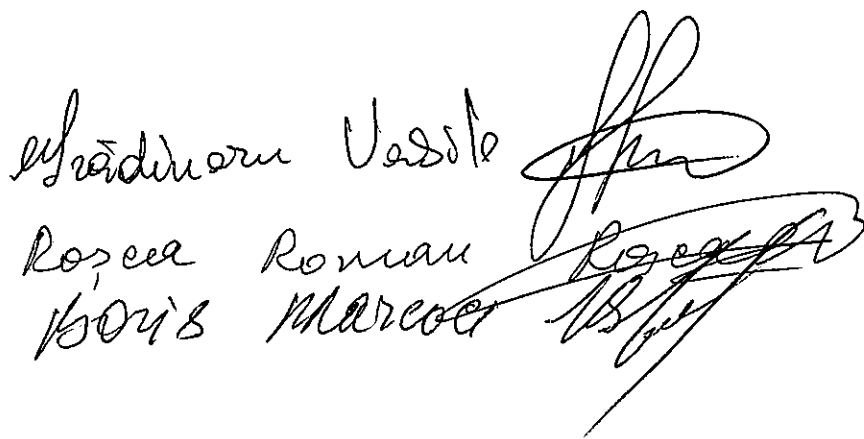 Grădinaru Vasile
Roșca Roman Roșca
Boris Marcoci